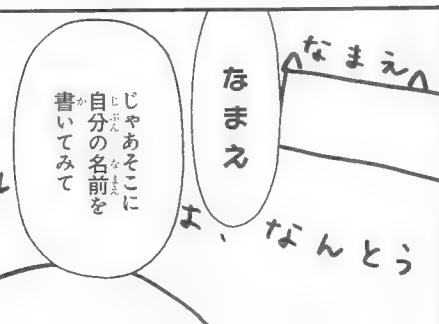 なまえ
なまえ
じゃあそこに
自分の名前を
書いてみて
よ、なんとう